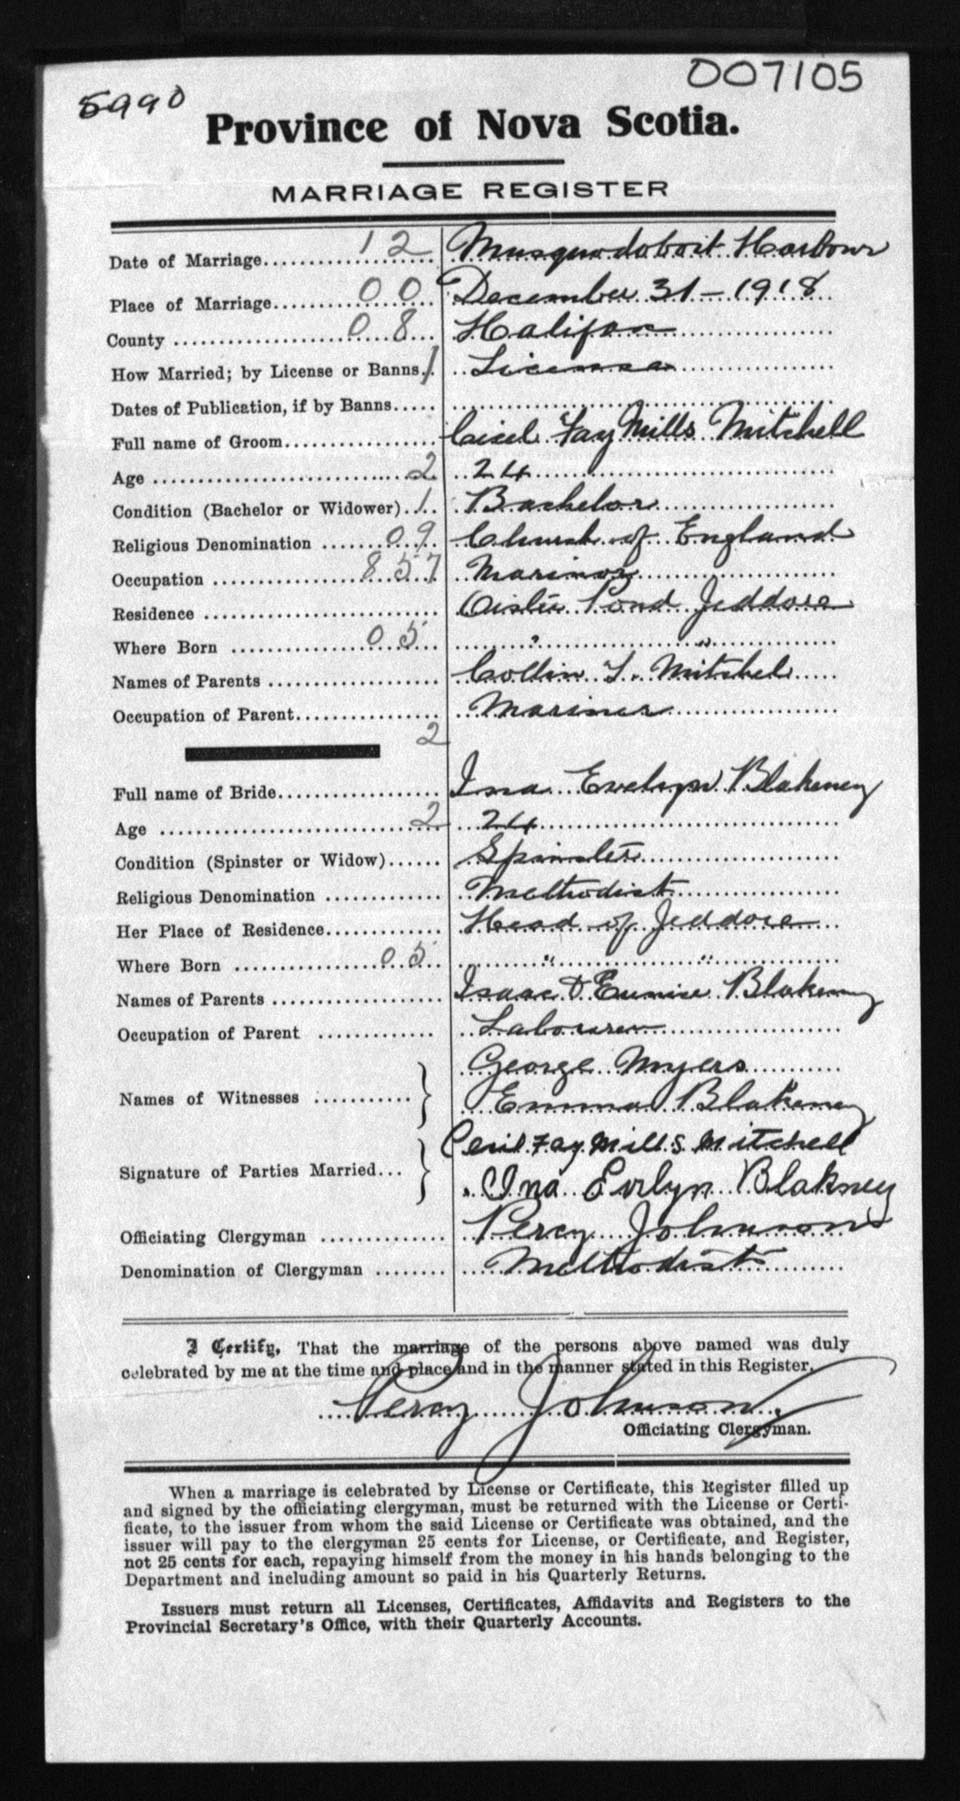 5990
007105
Province of Nova Scotia.
MARRIAGE REGISTER
Date of Marriage 12 Musquodoboit Harbour
Place of Marriage 00 December 31 - 1918
County 08 Halifax
How Married; by License or Banns 1 License
Dates of Publication, if by Banns
Full name of Groom Cicel Fay Mills Mitchell
Age 2 24
Condition (Bachelor or Widower) 1 Bachelor
Religious Denomination 09 Church of England
Occupation 857 Marinor
Residence Oister Pond Jeddore
Where Born 05 " "
Names of Parents Collin F. Mitchel
Occupation of Parent Mariner
2
Full name of Bride Ina Evelyn Blakeney
Age 2 24
Condition (Spinster or Widow) Spinster
Religious Denomination Methodist
Her Place of Residence Head of Jeddore
Where Born 05 " "
Names of Parents Isaac & Eunice Blakeney
Occupation of Parent Labourer
George Myers
Names of Witnesses } Emma Blakeney
Cecil Fay Mills Mitchell
Signature of Parties Married } Ina Evrlyn Blakney
Officiating Clergyman Percy Johnson
Denomination of Clergyman Methodist
I Certify, That the marriage of the persons above named was duly
celebrated by me at the time and place and in the manner stated in this Register.
Percy Johnson.
Officiating Clergyman.
When a marriage is celebrated by License or Certificate, this Register filled up
and signed by the officiating clergyman, must be returned with the License or Certi-
ficate, to the issuer from whom the said License or Certificate was obtained, and the
issuer will pay to the clergyman 25 cents for License, or Certificate, and Register,
not 25 cents for each, repaying himself from the money in his hands belonging to the
Department and including amount so paid in his Quarterly Returns.
Issuers must return all Licenses, Certificates, Affidavits and Registers to the
Provincial Secretary's Office, with their Quarterly Accounts.